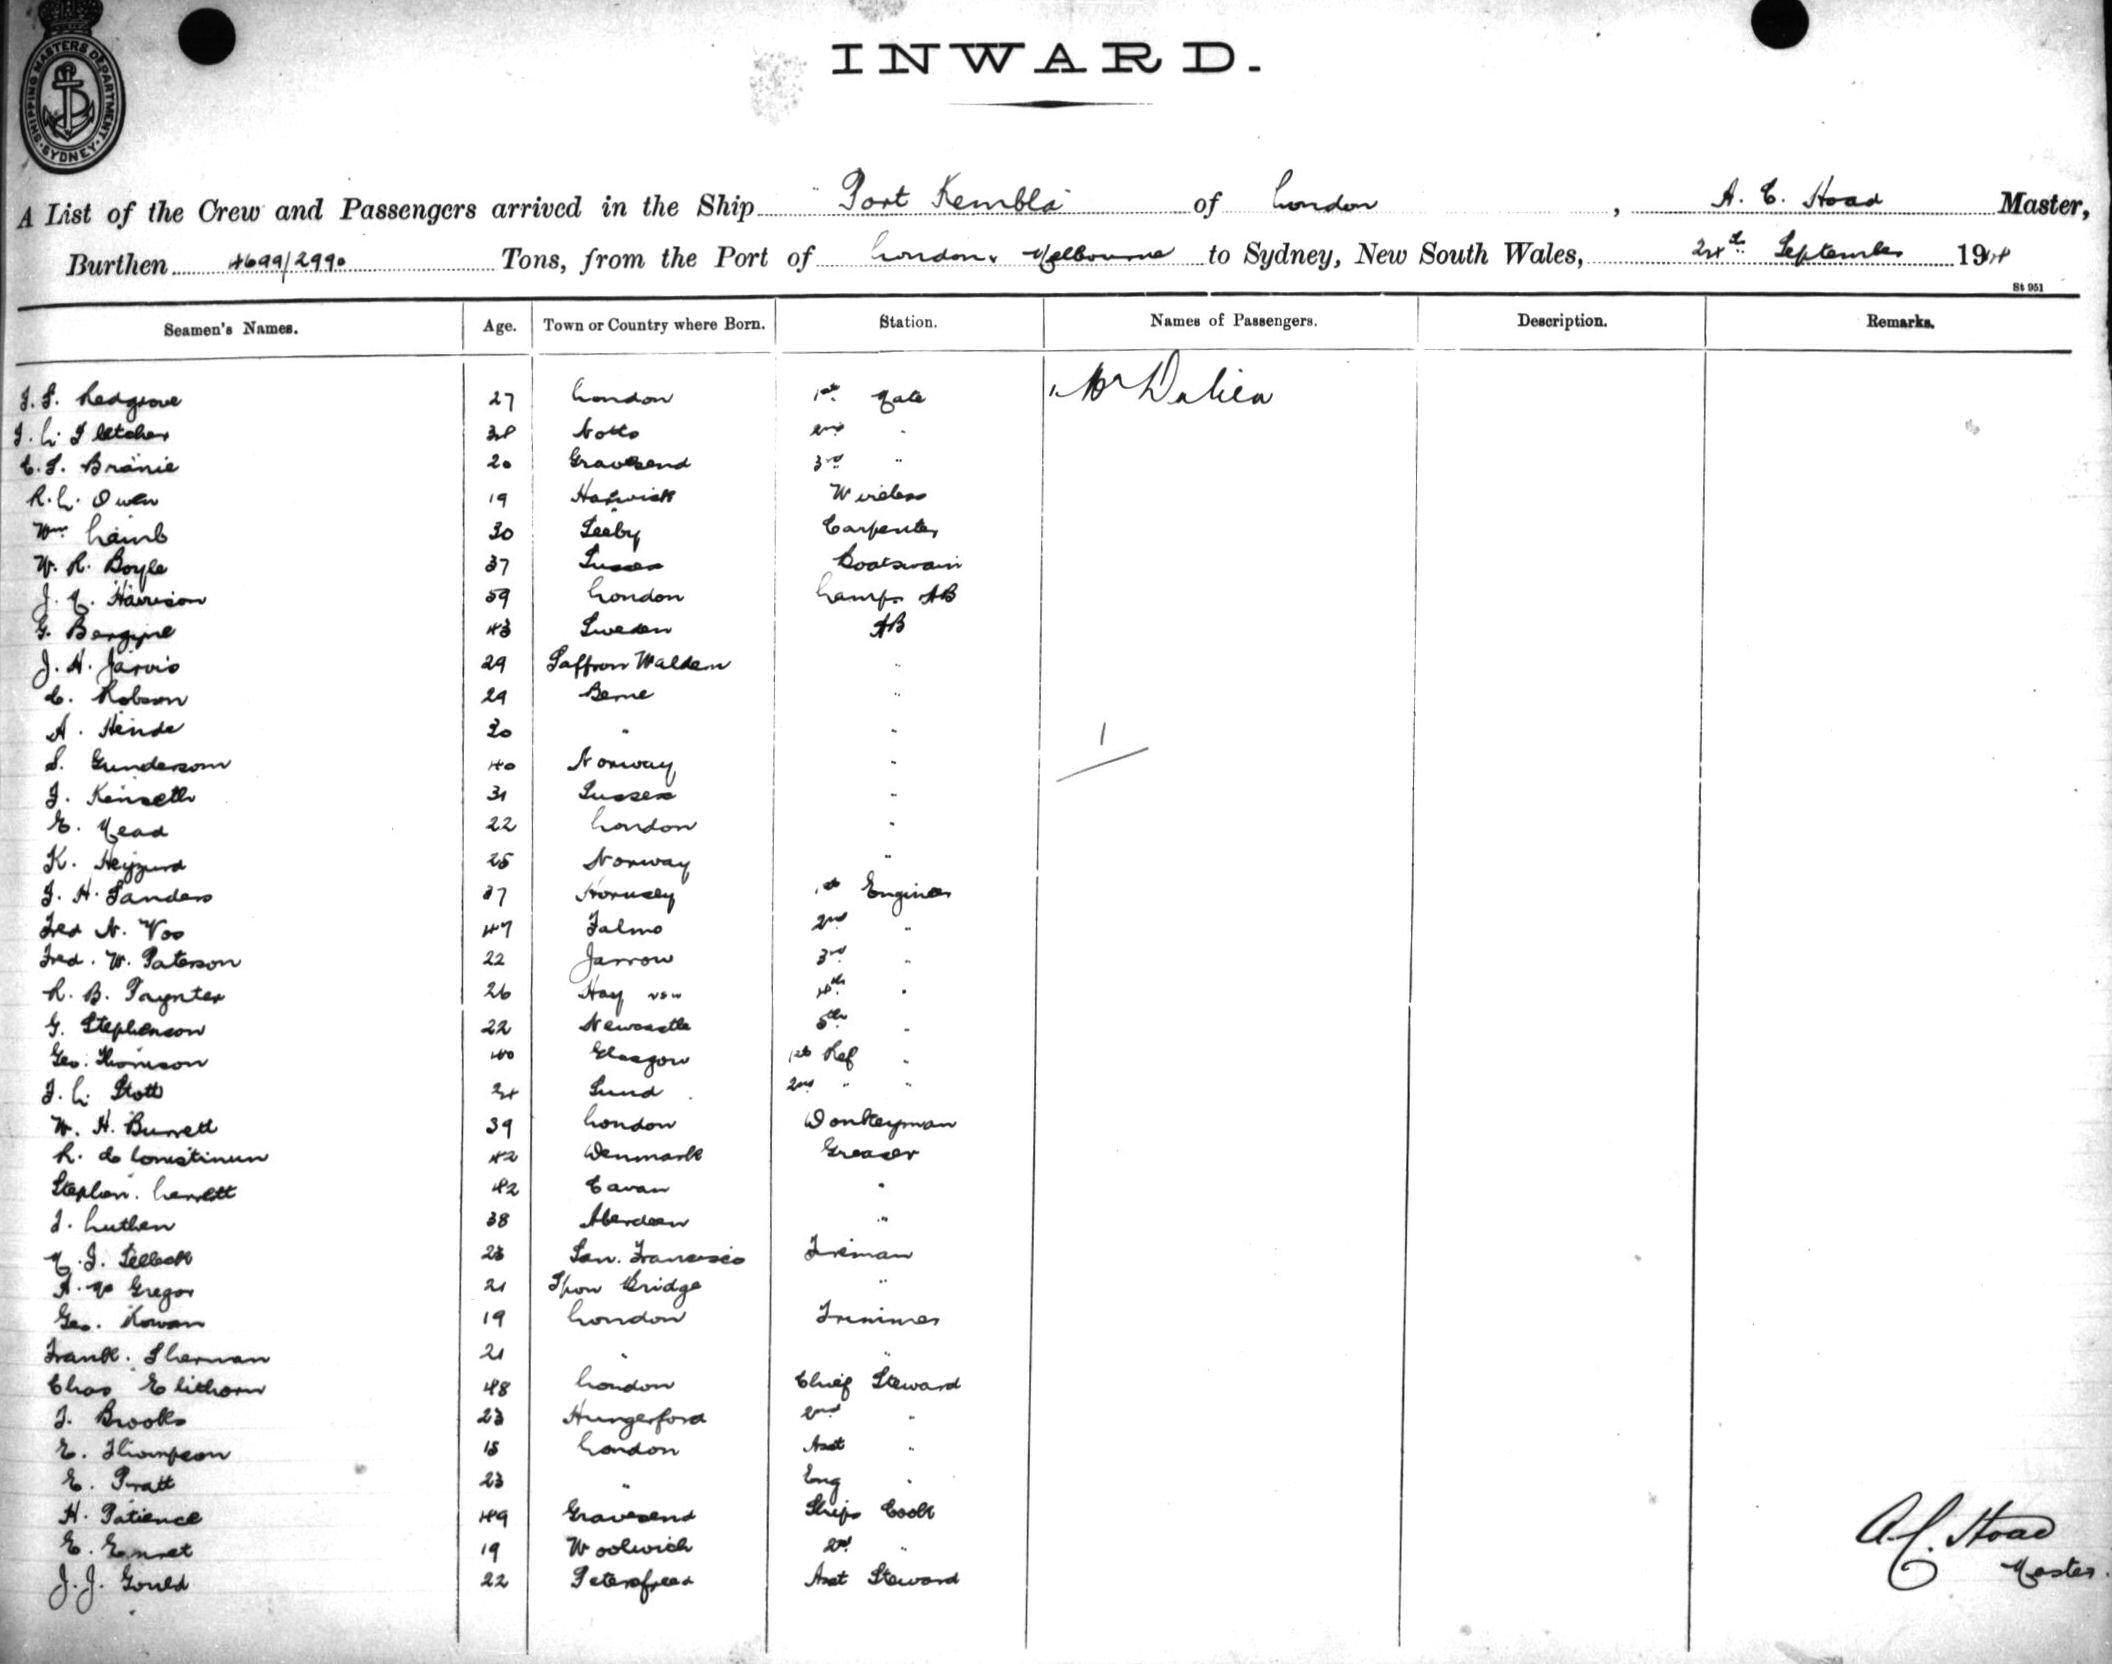 SHIPPING MASTERS DEPARTMENT. SYDNEY.
INWARD.
A List of the Crew and Passengers arrived in the Ship "Port Kembla" of London, A. C. Hoad Master,
Burthen 4699/2990 Tons, from the Port of London & Melbourne to Sydney, New South Wales, 24th September 1914
St 951
Seamen's Names. Age. Town or Country where Born. Station. Names of Passengers. Description. Remarks.
F. S. Redgrove 27 London 1st Mate 1. Mr
F. L. Fletcher 34 Notts 2nd "
C. S. Branie 20 Gravesend 3rd "
R. L. Owen 19 Harwick Wireless
Wm Lamb 30 Carpenter
W. R. Boyle 37 Sussex Boatswain
J. M. Harrison 59 London Lamps AB
G. 43 Sweden AB
J. H. Jarvis 29 Saffron Walden "
C. Robson 29 Berne "
A. Hinde 30 " "
S. Gunderson 40 Norway "
F. Kenseth 31 Sussex "
E. Mead 22 London "
K. 25 Norway "
F. H. Sanders 37 Hornsey 1st Engineer
Fred N. Vos 47 2nd "
Fred. W. Paterson 22 Jarrow 3rd "
R. B. Paynter 26 Hay NSW 4th "
G. Stephenson 22 Newcastle 5th "
Geo. Thomson 40 Glasgow 1st Ref "
F. L. Stott 24 2nd " "
W. H. Burrett 39 London Donkeyman
R. 42 Denmark Greaser
Stephen. 42 Cavan "
J. Luthen 38 Aberdeen "
M. J. 23 San. Francisco Fireman
A. Mc Gregor 21 Bridge "
Geo. Rowan 19 London Trimmer
Frank. Sherman 21 " "
Chas Elithorn 48 London Chief Steward
J. Brooks 23 Hungerford 2nd "
E. Thompson 18 London Asst "
E. Pratt 23 " Eng "
H. Patience 49 Gravesend Ships Cook
E. 19 Woolwich 2nd "
J. J. Gould 22 Petersfield Asst Steward
1
A. C. Hoad
Master.